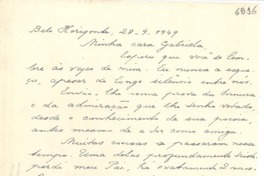 6836
Belo Horizonte, 28.9.1949
Minha cara Gabriela,
Espero que você se lem-
bre às vezes de mim. Eu nunca a esque-
ço, apesar do longo silêncio entre nós.
Envio-lhe uma prova de ternura
e da admiração que lhe tenho votado,
desde o conhecimento de sua poesia,
antes mesmo de a ter como amiga.
Muitas cousas se passaram nesse
tempo. Uma delas profundamente triste:
perdi meu Pai, há exatamente 2 anos.